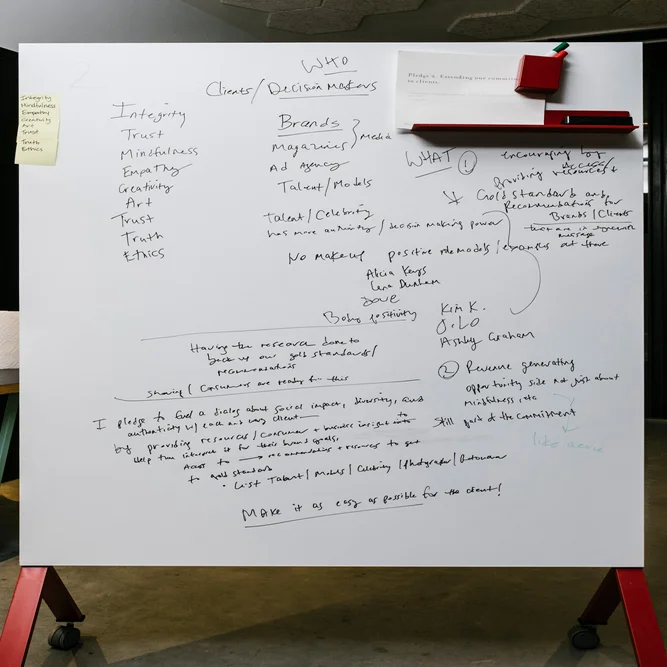 WHO
Clients/Decision Makers
Integrity
Mindfulness
Empathy
Creativity
Art
Trust
Truth
Ethics
Integrity
Trust
Mindfulness
Empathy
Creativity
Art
Trust
Truth
Ethics
Brands
Magazines } Media
Ad Agency
Talent/Models
Talent/Celebrity
has more authority/decision making power
No makeup positive role models/examples out there
Alicia Keys
Lena Dunham
Dove
Body positivity
Kim K.
J.LO
Ashley Graham
Pledge 2. Extending our commitment
to clients.
WHAT
① encouraging by
providing access/
resources +
Gold Standard and
Recommendations for
Brands/Clients
that are in
message
② Revenue generating
opportunity side not just about
mindfulness, etc
Still part of the commitment
like
Having the research done to
back up our gold standards/
recommendations
Showing/Consumers are ready for this
I pledge to fuel a dialog about social impact, diversity, and
authenticity w/ each and every client
by providing resources/consumer + business insight to
Help them interest it for their brand goals.
Access to → recommendations + resources to get
to gold standard
• List Talent/Models/Celebrity/Photographer/
Make it as easy as possible for the client!